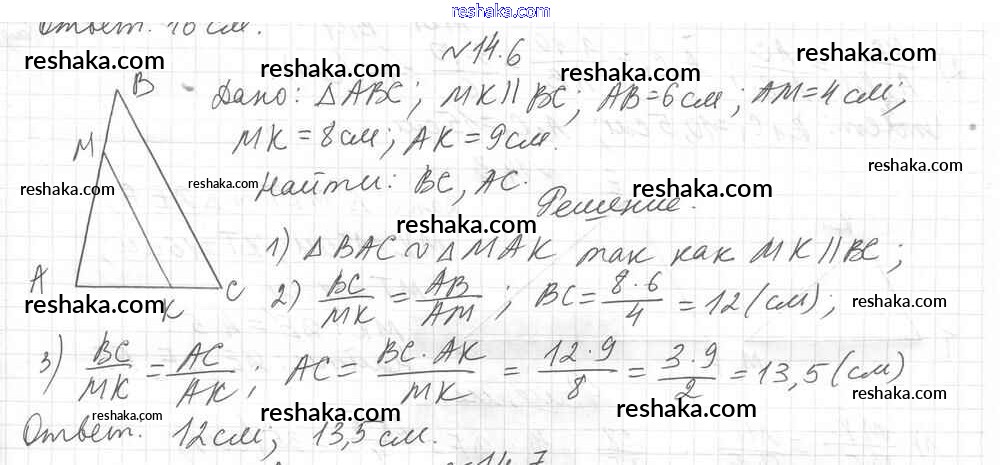 reshaka.com
Ответ. 16 см.
№14.6
Дано: △ABC; MK∥BC; AB=6см; AM=4см;
MK=8см; AK=9см.
Найти: BC, AC.
Решение.
B
M
A
K
C
1) △BAC∾△MAK так как MK∥BC;
2) BC/MK = AB/AM; BC = 8·6/4 = 12 (см);
3) BC/MK = AC/AK; AC = BC·AK/MK = 12·9/8 = 3·9/2 = 13,5 (см)
Ответ. 12см; 13,5см.
№14.7
reshaka.com
reshaka.com
reshaka.com
reshaka.com
reshaka.com
reshaka.com
reshaka.com
reshaka.com
reshaka.com
reshaka.com
reshaka.com
reshaka.com
reshaka.com
reshaka.com
reshaka.com